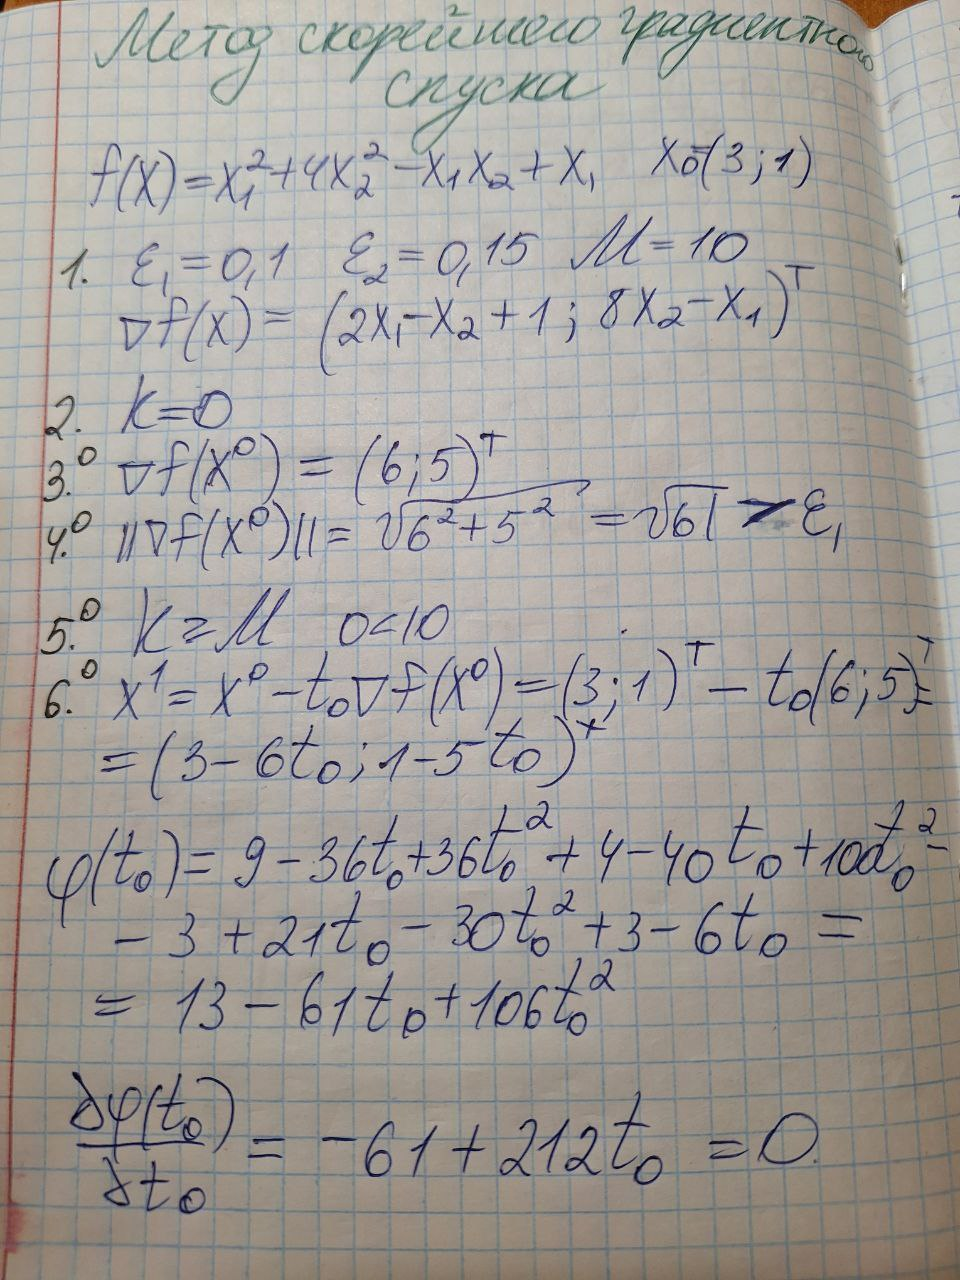 Метод скорейшего градиентного
спуска
f(x) = x₁² + 4x₂² − x₁x₂ + x₁   x₀=(3;1)
1. ε₁ = 0,1   ε₂ = 0,15   M = 10
∇f(x) = (2x₁ − x₂ + 1; 8x₂ − x₁)ᵀ
2. K = 0
3.⁰ ∇f(x⁰) = (6;5)ᵀ
4.⁰ ||∇f(x⁰)|| = √(6² + 5²) = √61 > ε₁
5.⁰ K ≥ M   0<10
6.⁰ x¹ = x⁰ − t₀∇f(x⁰) = (3;1)ᵀ − t₀(6;5)ᵀ =
= (3 − 6t₀; 1 − 5t₀)ᵀ
φ(t₀) = 9 − 36t₀ + 36t₀² + 4 − 40t₀ + 100t₀² −
− 3 + 21t₀ − 30t₀² + 3 − 6t₀ =
= 13 − 61t₀ + 106t₀²
∂φ(t₀)/∂t₀ = −61 + 212t₀ = 0.